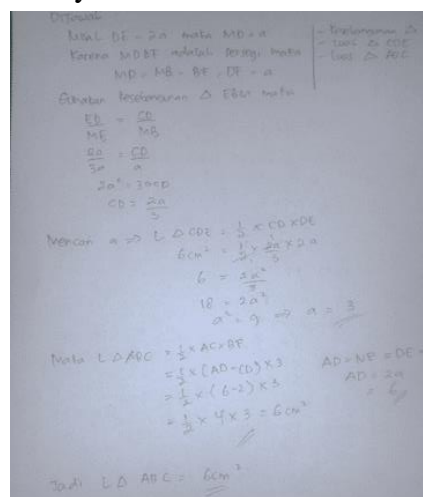 Dijawab
Misal DE = 2a maka MD = a
Karena MDBF adalah persegi maka
MD = MB = BF = DF = a
- Kesebangunan Δ
- Luas Δ CDE
- Luas Δ ABC
Gunakan kesebangunan Δ EBM maka
ED / ME = CD / MB
2a / 3a = CD / a
2a² = 3aCD
CD = 2a / 3
Mencari a ⇒ L Δ CDE = 1/2 × CD × DE
6cm² = 1/2 × 2a/3 × 2a
6 = 2a² / 3
18 = 2a²
a² = 9 ⇒ a = 3
Maka L Δ ABC = 1/2 × AC × BF
= 1/2 × (AD - CD) × 3
= 1/2 × (6 - 2) × 3
= 1/2 × 4 × 3 = 6 cm²
AD = NE = DE =
AD = 2a
= 6
Jadi L Δ ABC = 6cm²